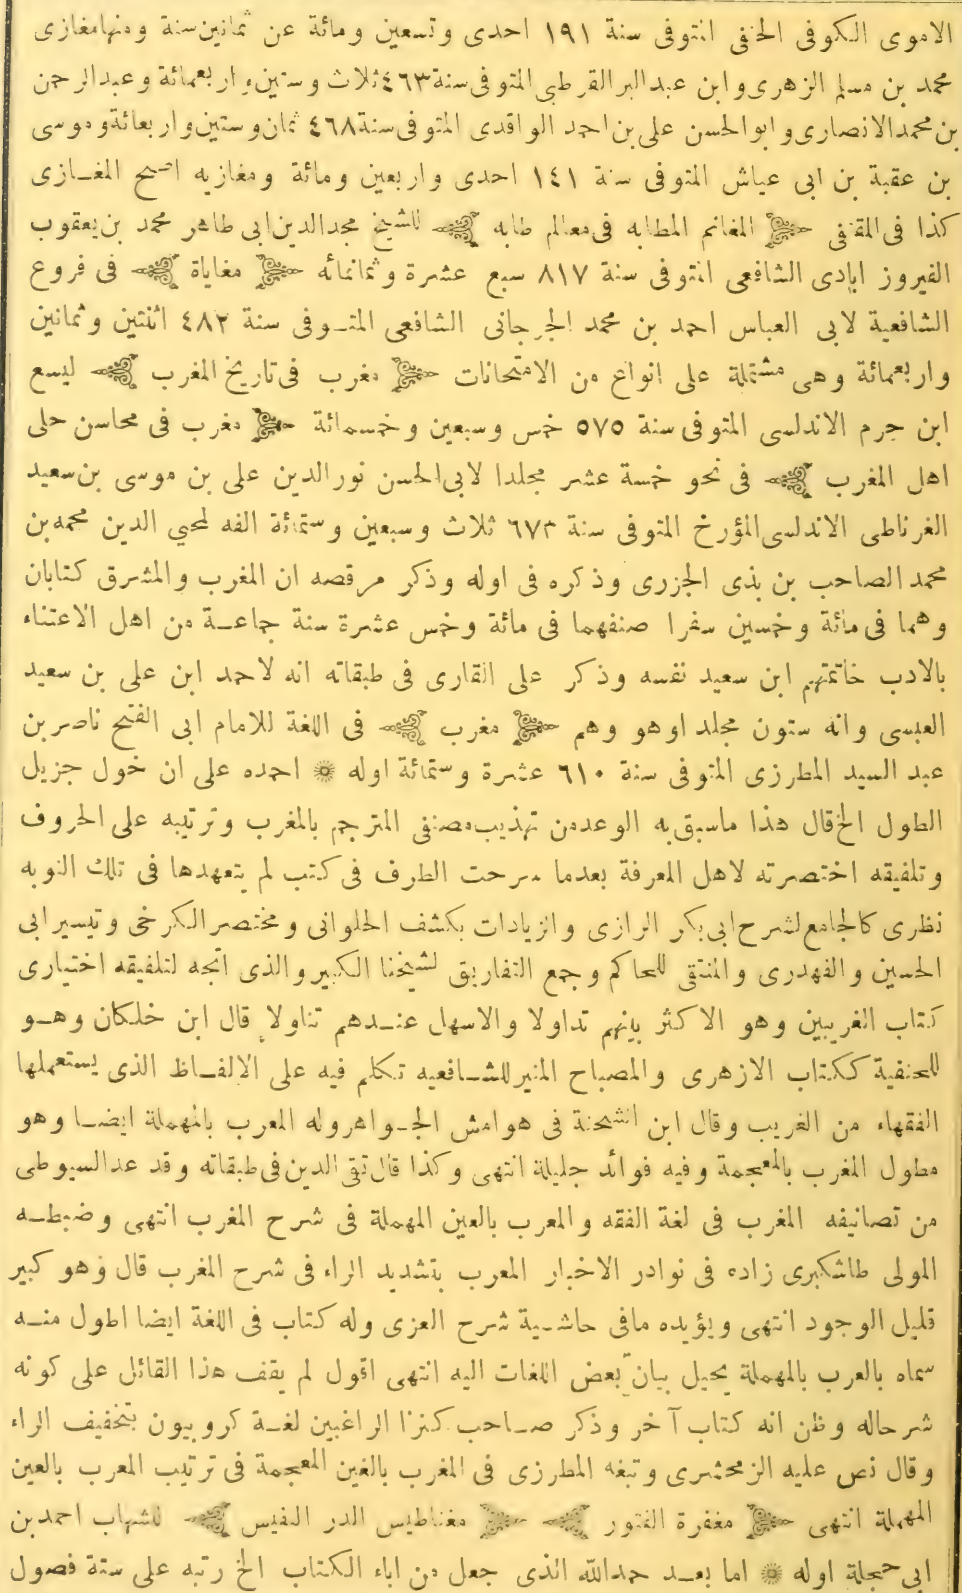 الاموى الكوفى الحنفى المتوفى سنة ١٩١ احدى وتسعين ومائة عن ثمانين سنة ومنها مغازى
محمد بن مسلم الزهرى وابن عبد البر القرطبى المتوفى سنة ٤٦٣ ثلاث وستين واربعمائة وعبد الرحمن
بن محمد الانصارى وابو الحسن على بن احمد الواقدى المتوفى سنة ٤٦٨ ثمان وستين واربعمائة وموسى
بن عقبة بن ابى عياش المتوفى سنة ١٤١ احدى واربعين ومائة ومغازيه اصح المغازى
كذا فى المقتفى ﴿ المغانم المطابه فى معالم طابه ﴾ للشيخ مجد الدين ابى طاهر محمد بن يعقوب
الفيروز ابادى الشافعى المتوفى سنة ٨١٧ سبع عشرة وثمانمائه ﴿ مغاياة ﴾ فى فروع
الشافعية لابى العباس احمد بن محمد الجرجانى الشافعى المتوفى سنة ٤٨٢ اثنتين وثمانين
واربعمائة وهى مشتملة على انواع من الامتحانات ﴿ مغرب فى تاريخ المغرب ﴾ ليسع
ابن جرم الاندلسى المتوفى سنة ٥٧٥ خمس وسبعين وخمسمائة ﴿ مغرب فى محاسن حلى
اهل المغرب ﴾ فى نحو خمسة عشر مجلدا لابى الحسن نور الدين على بن موسى بن سعيد
الغرناطى الاندلسى المؤرخ المتوفى سنة ٦٧٣ ثلاث وسبعين وستمائة الفه لمحيى الدين محمد بن
محمد الصاحب بن بذى الجزرى وذكره فى اوله وذكر مرقصه ان المغرب والمشرق كتابان
وهما فى مائة وخمسين سفرا صنفهما فى مائة وخمس عشرة سنة جماعة من اهل الاعتناء
بالادب خاتمتهم ابن سعيد نفسه وذكر على القارى فى طبقاته انه لاحمد ابن على بن سعيد
العبسى وانه ستون مجلد اوهو وهم ﴿ مغرب ﴾ فى اللغة للامام ابى الفتح ناصر بن
عبد السيد المطرزى المتوفى سنة ٦١٠ عشرة وستمائة اوله ❊ احمده على ان خول جزيل
الطول الخ قال هذا ماسبق به الوعد من تهذيب مصنفى المترجم بالمغرب وترتيبه على الحروف
وتلفيقه اختصرته لاهل المعرفة بعدما سرحت الطرف فى كتب لم يتعهدها فى تلك النوبه
نظرى كالجامع لشرح ابى بكر الرازى والزيادات بكشف الحلوانى ومختصر الكرخى وتيسير ابى
الحسين والفهدرى والمنتقى للحاكم وجمع التفاريق لشيخنا الكبير والذى اتجه لتلفيقه اختيارى
كتاب الغريبين وهو الاكثر بينهم تداولا والاسهل عندهم تناولا قال ابن خلكان وهو
للحنفية ككتاب الازهرى والمصباح المنير للشافعيه تكلم فيه على الالفاظ الذى يستعملها
الفقهاء من الغريب وقال ابن الشحنة فى هوامش الجواهر وله المعرب بالمهملة ايضا وهو
مطول المغرب بالمعجمة وفيه فوائد جليلة انتهى وكذا قال تقى الدين فى طبقاته وقد عد السيوطى
من تصانيفه المغرب فى لغة الفقه والمعرب بالعين المهملة فى شرح المغرب انتهى وضبطه
المولى طاشكبرى زاده فى نوادر الاخبار المعرب بتشديد الراء فى شرح المغرب قال وهو كبير
قليل الوجود انتهى ويؤيده مافى حاشية شرح العزى وله كتاب فى اللغة ايضا اطول منه
سماه بالعرب بالمهملة يحيل بيان بعض اللغات اليه انتهى اقول لم يقف هذا القائل على كونه
شرحاله وظن انه كتاب آخر وذكر صاحب كنز الراغبين لغة كروبيون بتخفيف الراء
وقال نص عليه الزمحشرى وتبغه المطرزى فى المغرب بالغين المعجمة فى ترتيب المعرب بالعين
المهملة انتهى ﴿ مغفرة الغتور ﴾ ﴿ مغناطيس الدر النفيس ﴾ للشهاب احمد بن
ابى حجلة اوله ❊ اما بعد حمد الله الذى جعل من اباء الكتاب الخ رتبه على ستة فصول